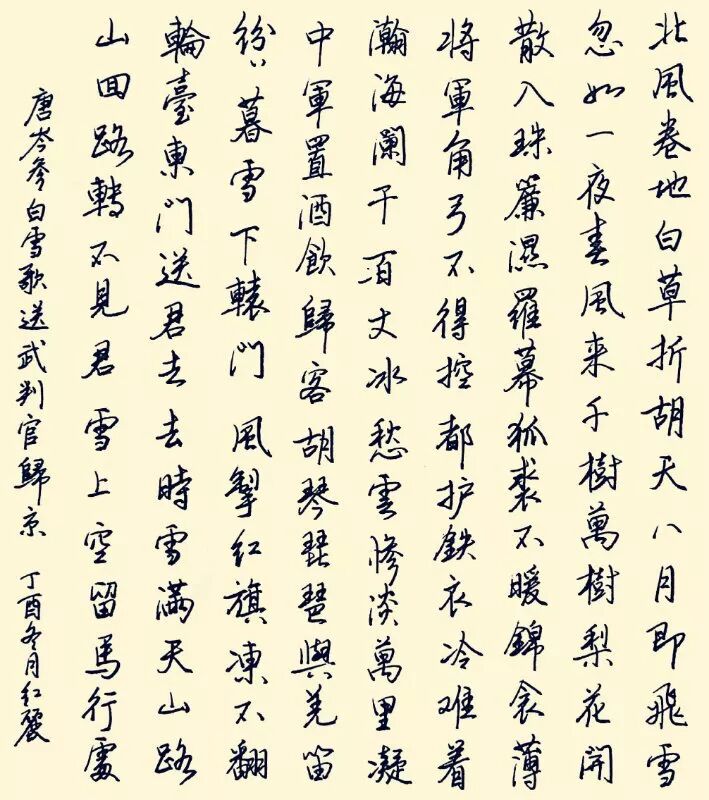 北風卷地白草折胡天八月即飛雪
忽如一夜春風来千樹萬樹梨花開
散入珠簾濕羅幕狐裘不暖錦衾薄
将軍角弓不得控都护鉄衣冷难着
瀚海闌干百丈冰愁雲惨淡萬里凝
中軍置酒飲歸客胡琴琵琶與羌笛
紛〻暮雪下轅門風掣红旗凍不翻
輪臺東門送君去去時雪满天山路
山回路轉不見君雪上空留馬行處
唐岑參白雪歌送武判官歸京 丁酉冬月红麗